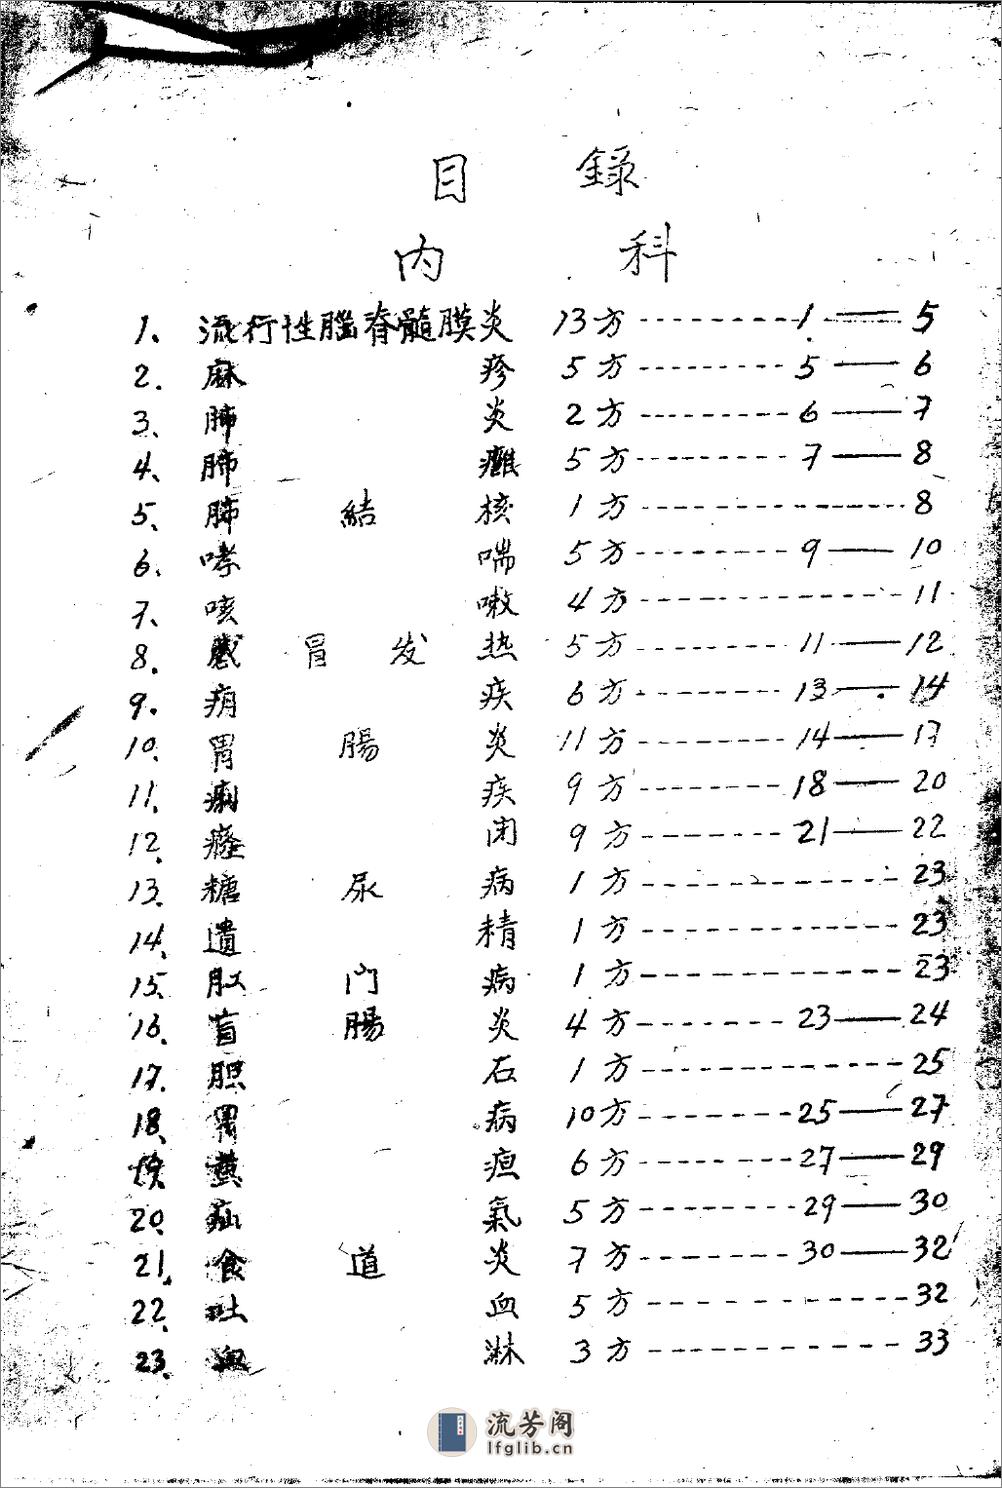 目 錄
内 科
1. 流行性腦脊髓膜炎 13方 1——5
2. 麻疹 5方 5——6
3. 肺炎 2方 6——7
4. 肺癰 5方 7——8
5. 肺結核 1方 8
6. 哮喘 5方 9——10
7. 咳嗽 4方 11
8. 感冒发热 5方 11——12
9. 疾 6方 13——14
10. 胃腸炎 11方 14——17
11. 痢疾 9方 18——20
12. 癃闭 9方 21——22
13. 糖尿病 1方 23
14. 遺精 1方 23
15. 肛门病 1方 23
16. 盲腸炎 4方 23——24
17. 胆石 1方 25
18. 胃病 10方 25——27
黄疸 6方 27——29
20. 疝氣 5方 29——30
21. 食道炎 7方 30——32
22. 吐血 5方 32
23. 血淋 3方 33
流芳阁
lfglib.cn